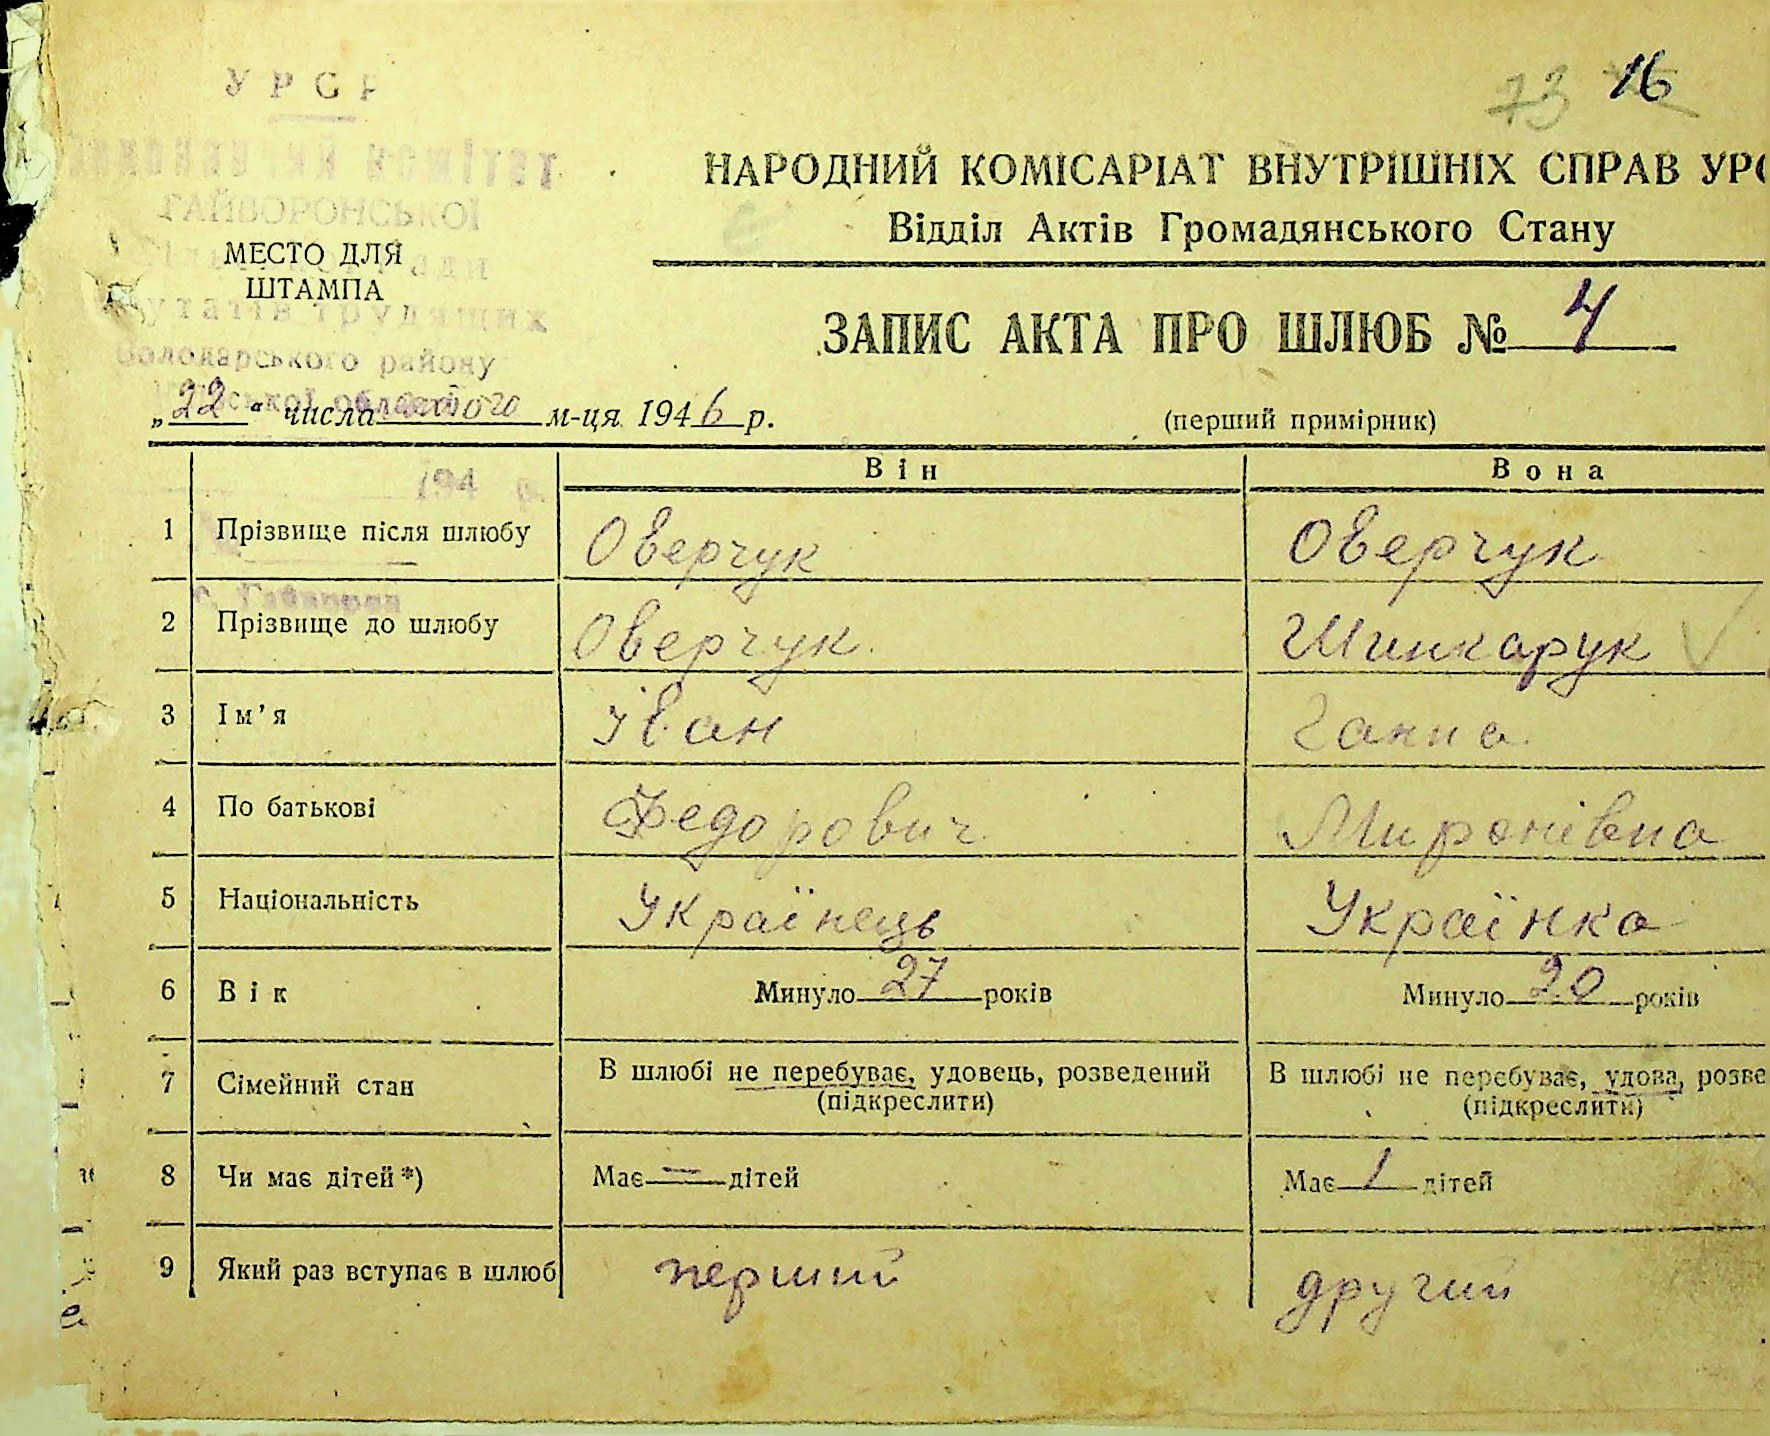 УРСР
73 16
виконавчий комітет
НАРОДНИЙ КОМІСАРІАТ ВНУТРІШНІХ СПРАВ УРС
ГАЙВОРОНСЬКОЇ
Відділ Актів Громадянського Стану
МЕСТО ДЛЯ
ШТАМПА
трудящих
ЗАПИС АКТА ПРО ШЛЮБ № 4
Володарського району
„22“ числа лютого м-ця 1946 р. (перший примірник)
Він Вона
194 р.
1 Прізвище після шлюбу Оверчук Оверчук
с. Гайворон
2 Прізвище до шлюбу Оверчук Шинкарук
3 Ім’я Іван Ганна
4 По батькові Федорович Миронівна
5 Національність Українець Українка
6 Вік Минуло 27 років Минуло 20 років
7 Сімейний стан В шлюбі не перебуває, удовець, розведений В шлюбі не перебуває, удова, розве
(підкреслити) (підкреслити)
8 Чи має дітей*) Має — дітей Має 1 дітей
9 Який раз вступає в шлюб перший другий